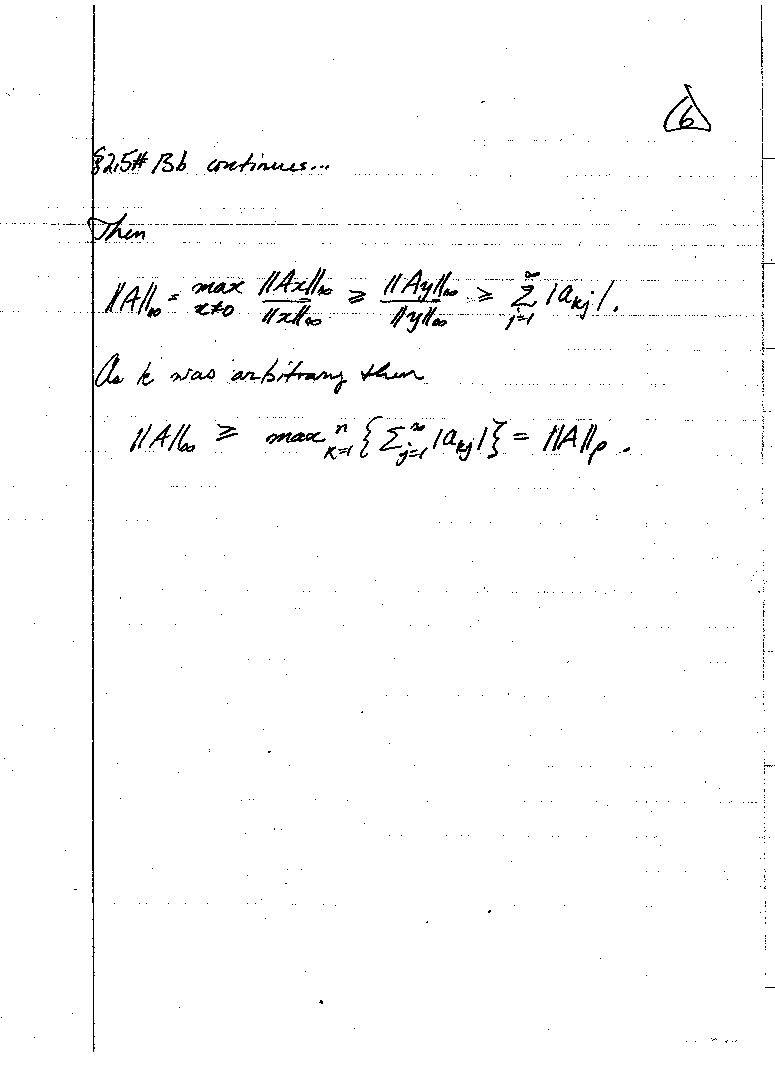 6
§2.5# Bb continues...
Then
||A||∞ = max x≠0 ||Ax||∞ / ||x||∞ ≥ ||Ay||∞ / ||y||∞ ≥ ∑ⁿⱼ₌₁ |aₖⱼ|.
As k was arbitrary then
||A||∞ ≥ maxⁿₖ₌₁ { ∑ⁿⱼ₌₁ |aₖⱼ| } = ||A||ρ.